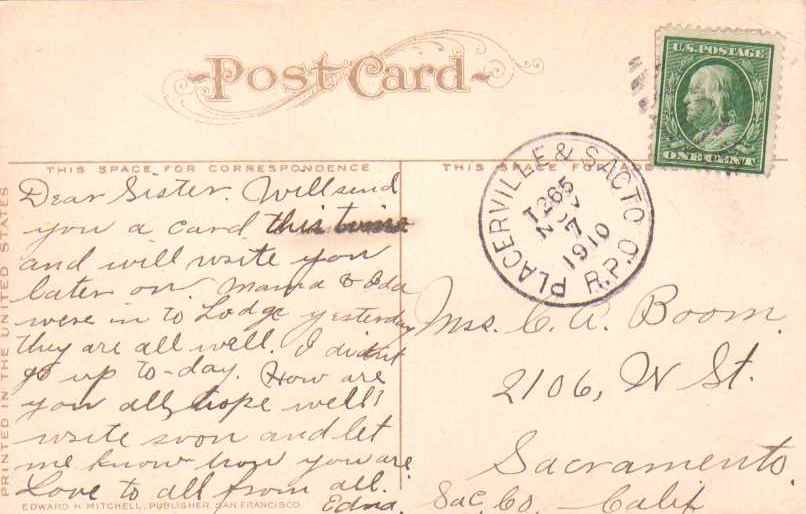 Post Card
U.S. POSTAGE
ONE CENT
THIS SPACE FOR CORRESPONDENCE
THIS SPACE FOR
PLACERVILLE & SACTO
T265
NOV
7
1910
R.P.O
PRINTED IN THE UNITED STATES
Dear Sister. Will send
you a card this
and will write you
later on. Mama & Ida
were in to Lodge yesterday
they are all well. I didnt
go up to-day. How are
you all, hope well!
write soon and let
me know how you are
Love to all from all.
Edna.
Mrs. C. A. Boom.
2106, N St.
Sacramento.
Sac. Co. Calif
EDWARD H. MITCHELL, PUBLISHER, SAN FRANCISCO